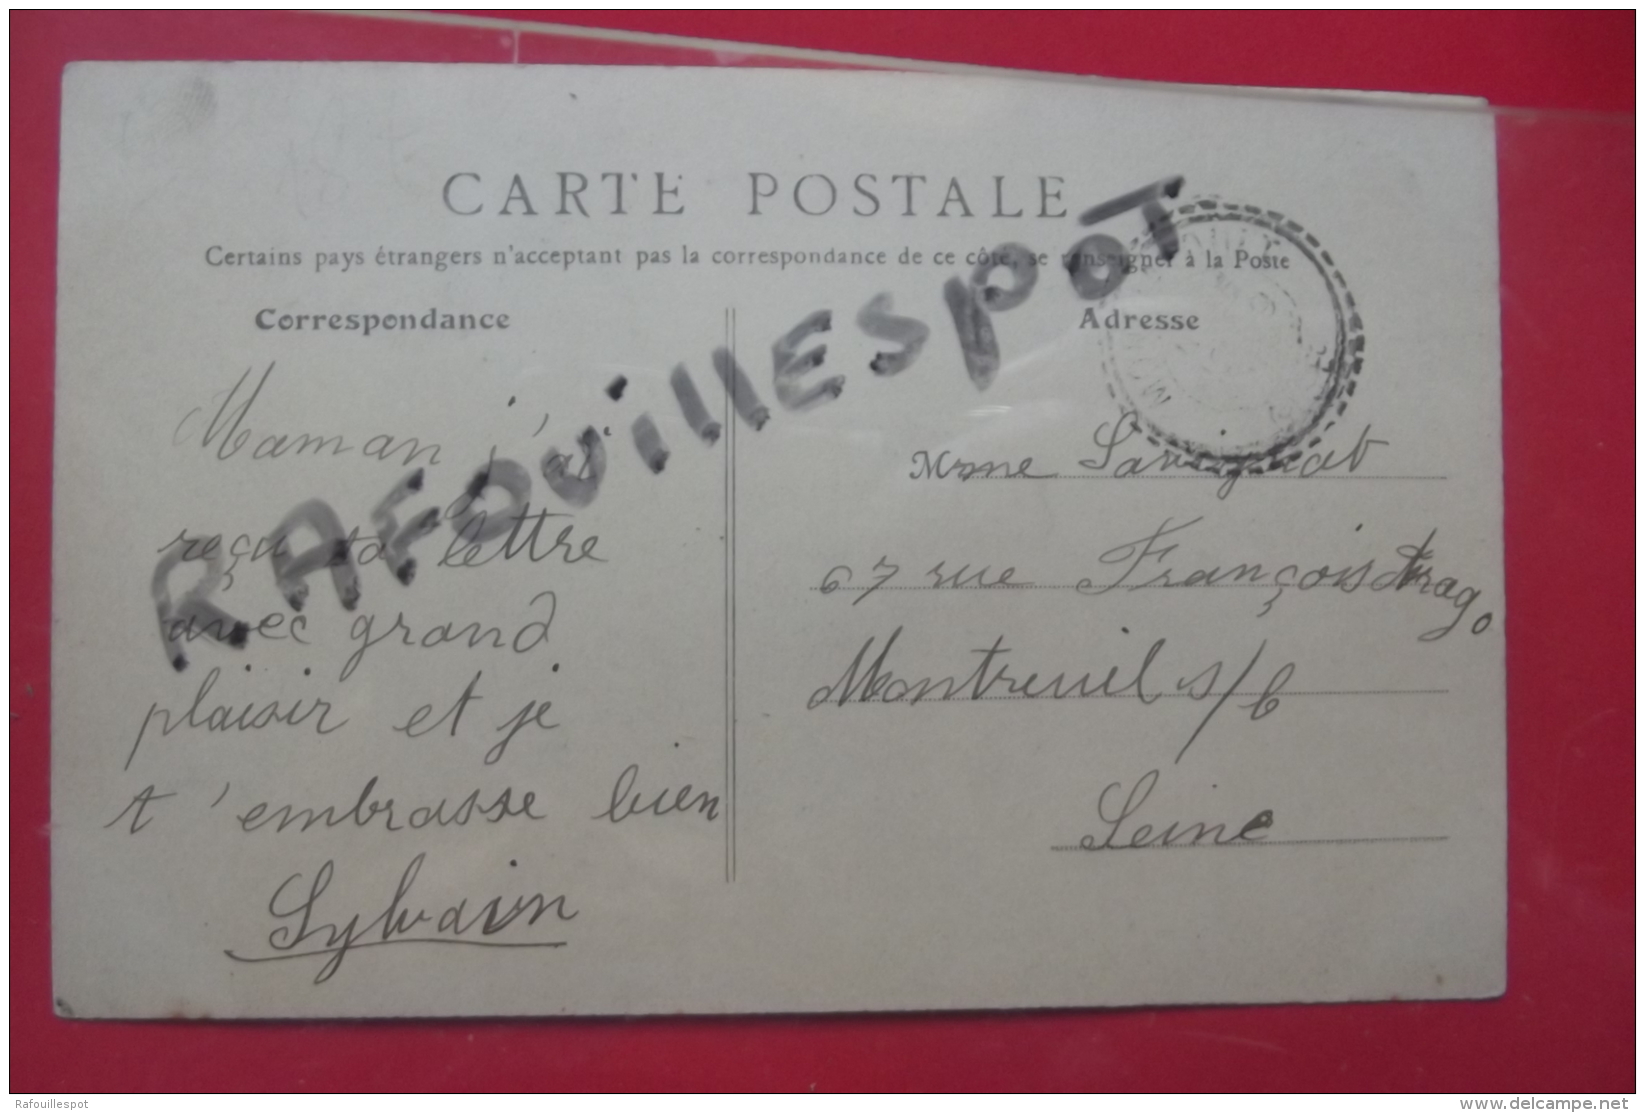 CARTE POSTALE
Certains pays étrangers n'acceptant pas la correspondance de ce côté, se renseigner à la Poste
Correspondance
Maman j'ai
reçu ta lettre
avec grand
plaisir et je
t'embrasse bien
Sylvain
Adresse
Mme Savignat
67 rue François Arago
Montreuil s/b
Seine
RAFOUillESPOT
Rafouillespot
www.delcampe.net